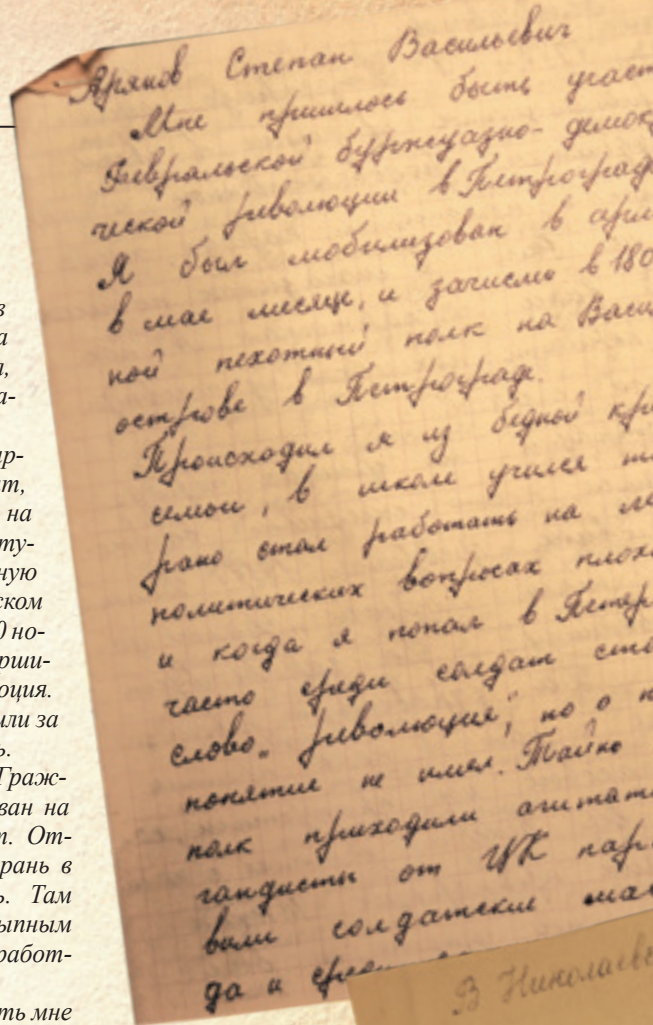 з
а
а,
а-
ар-
ат,
на
ту-
ную
ском
0 но-
рши-
юция.
или за
ь.
Граж-
ван на
т. От-
рань в
ь. Там
ыпным
работ-
ть мне
Аряков Степан Васильевич
Мне пришлось быть участ
Февральской буржуазно-демокр
ческой революции в Петрограде
Я был мобилизован в арм
в мае месяце, и зачислен в 180
ной пехотный полк на Васил
острове в Петрограде.
Происходил я из бедной кре
семьи, в школе учился
рано стал работать на
политических вопросах плохо
и когда я попал в Петер
часто среди солдат ста
слово „революция", но о н
понятие не имел. Тайно
полк приходили агитат
гандисты от ЦК пар
вили солдатские
да и среди
В Николаев